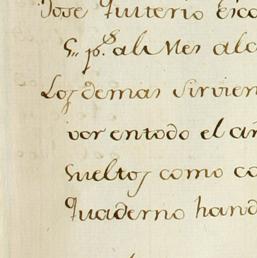 Jose Quiterio Esca
5„ p.s al Mes alc
Los demas sirvien
vor en todo el añ
sueltos como ca
Quaderno hand